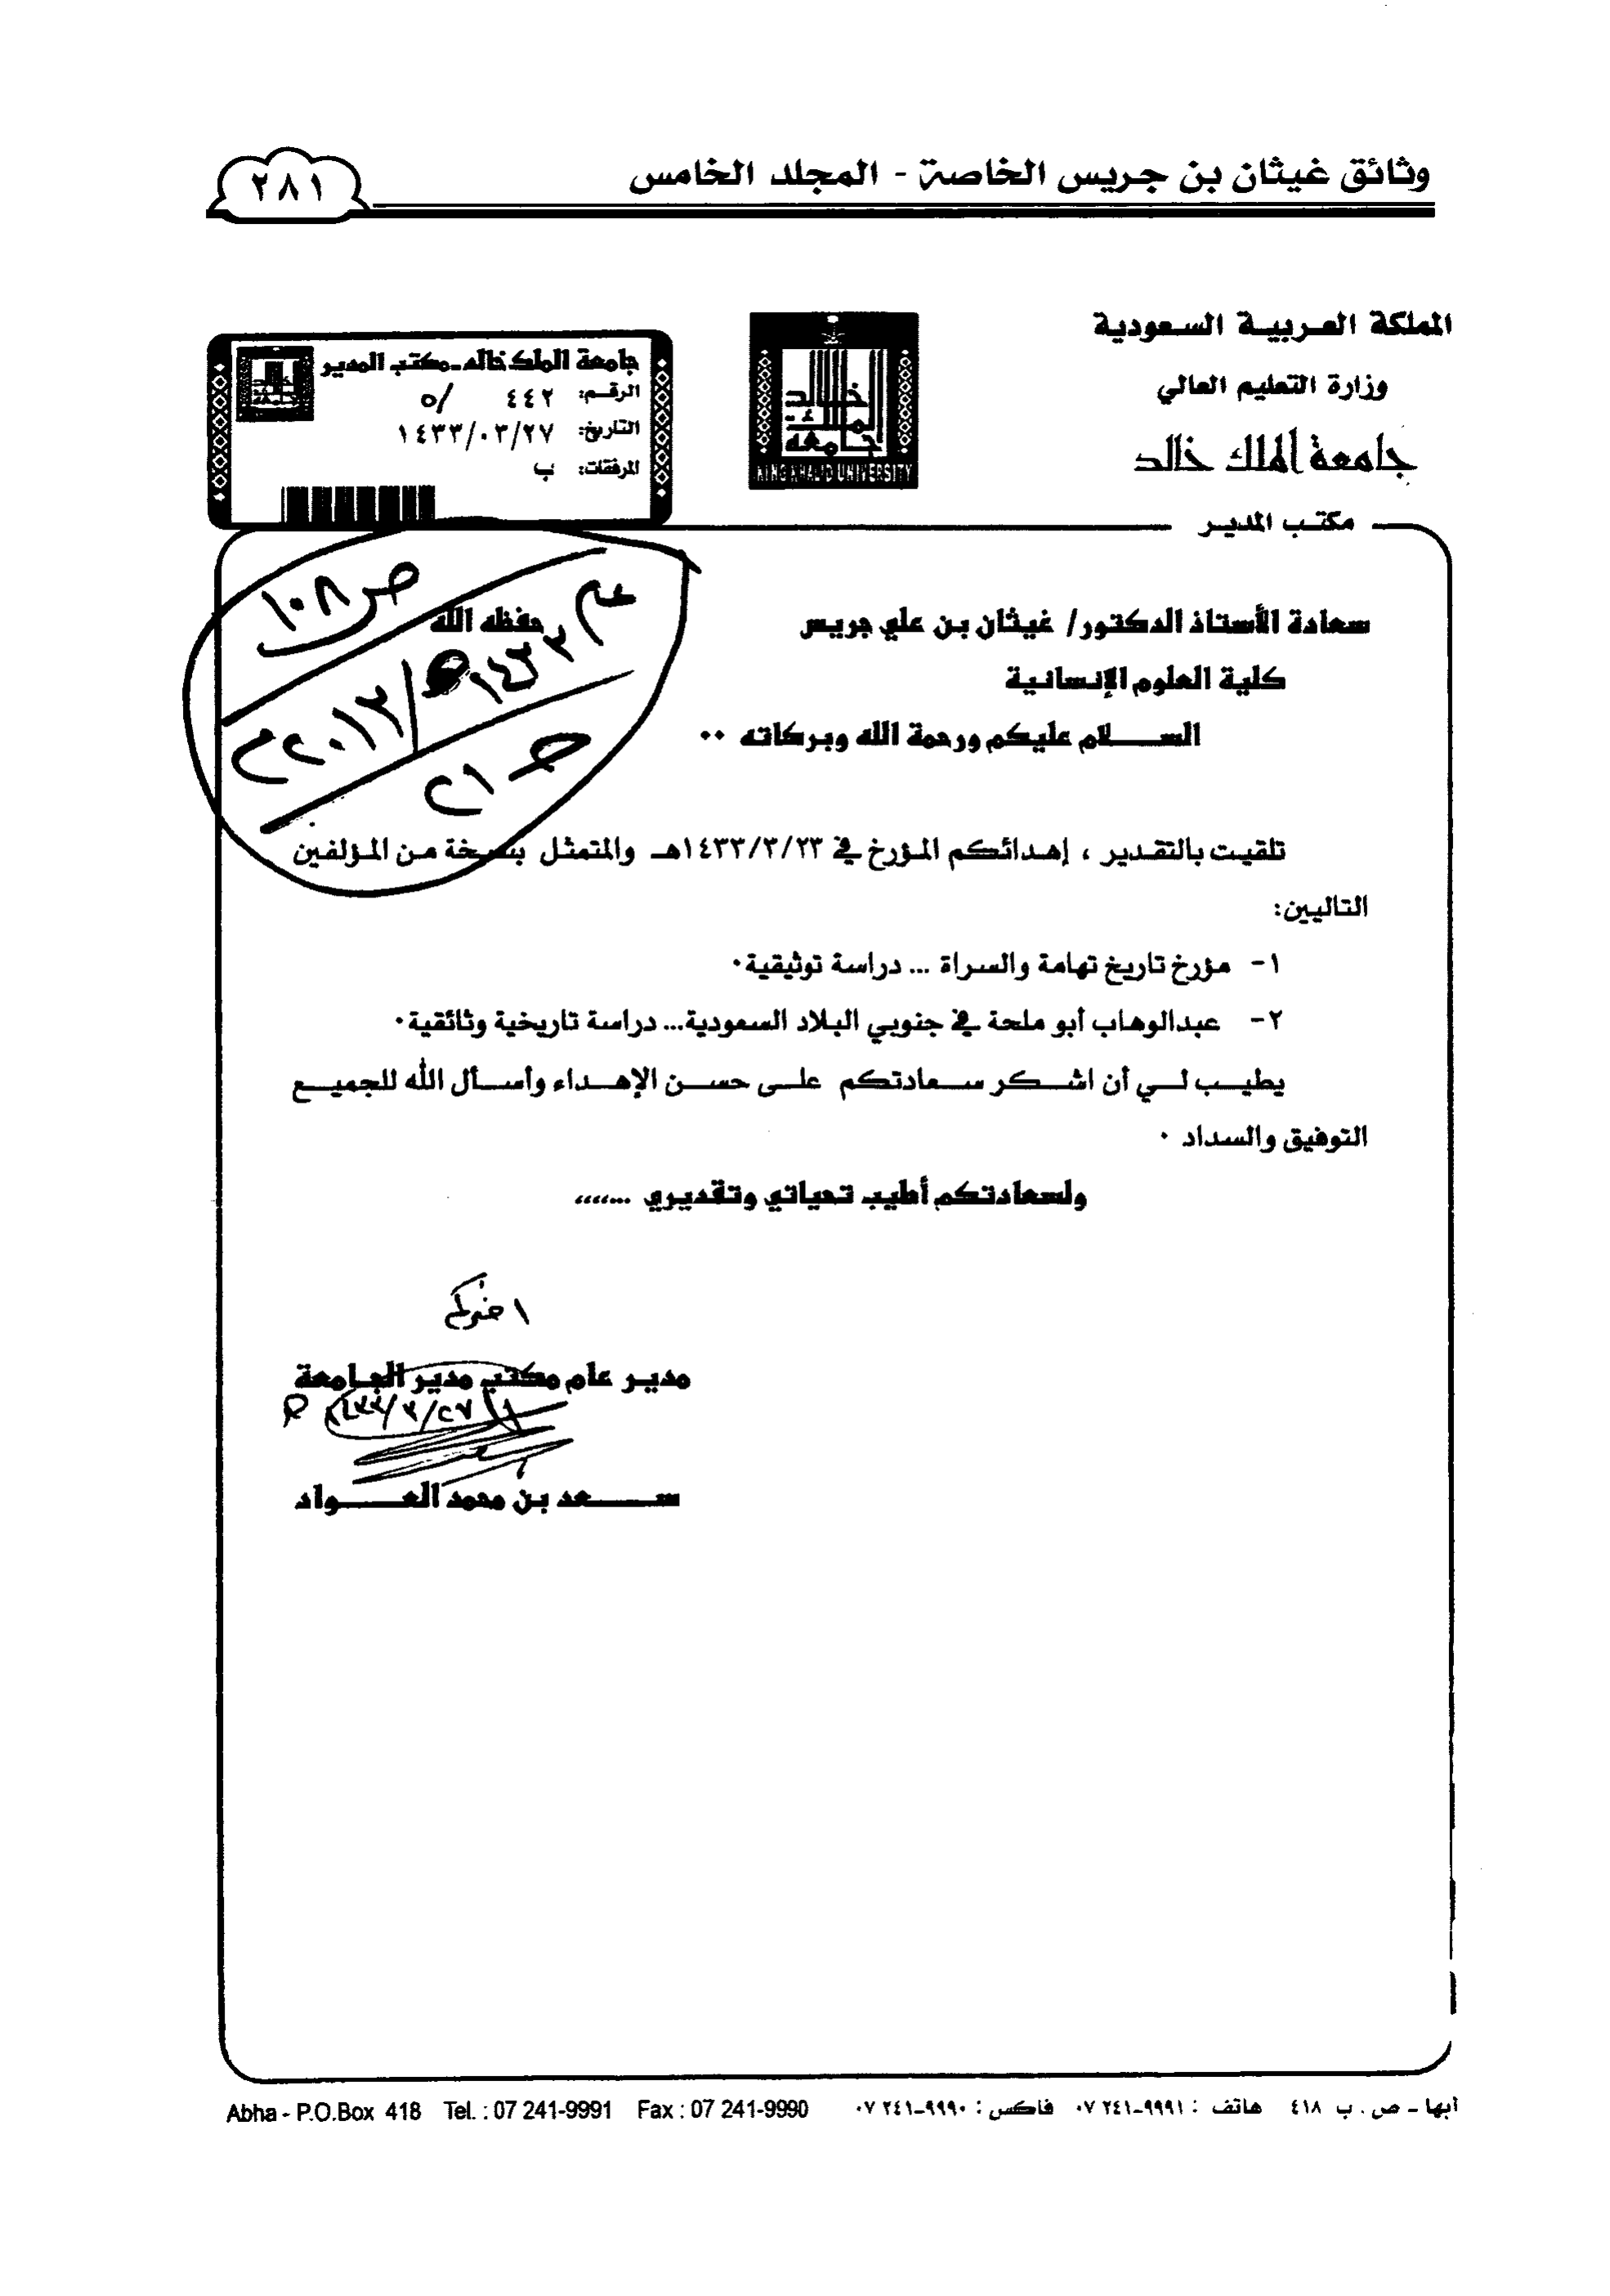 وثائق غيثان بن جريس الخاصة - المجلد الخامس
٢٨١
المملكة العربية السعودية
وزارة التعليم العالي
جامعة الملك خالد
مكتب المدير
جامعة الملك خالد
KING KHALID UNIVERSITY
جامعة الملك خالد - مكتب المدير
الرقم: ٤٤٢ /٥
التاريخ: ١٤٣٣/٠٣/٢٧
المرفقات: ب
ص ١٠٨
عام ١٤٣٣هـ/٢٠١٢م
جـ ٢١
سعادة الأستاذ الدكتور/ غيثان بن علي جريس حفظه الله
كلية العلوم الإنسانية
السلام عليكم ورحمة الله وبركاته ..
تلقيت بالتقدير ، إهدائكم المؤرخ في ١٤٣٣/٣/٢٣هـ والمتمثل بنسخة من المؤلفين
التاليين:
١- مؤرخ تاريخ تهامة والسراة ... دراسة توثيقية.
٢- عبدالوهاب أبو ملحة في جنوبي البلاد السعودية... دراسة تاريخية وثائقية.
يطيب لي أن اشكر سعادتكم على حسن الإهداء وأسأل الله للجميع
التوفيق والسداد .
ولسعادتكم أطيب تحياتي وتقديري ...،،،،
اخوكم
مدير عام مكتب مدير الجامعة
١٤٣٣/٣/٢٧هـ
سعد بن محمد العواد
أبها - ص . ب ٤١٨ هاتف : ٩٩٩١-٢٤١ ٠٧ فاكس : ٩٩٩٠-٢٤١ ٠٧
Abha - P.O.Box 418 Tel. : 07 241-9991 Fax : 07 241-9990